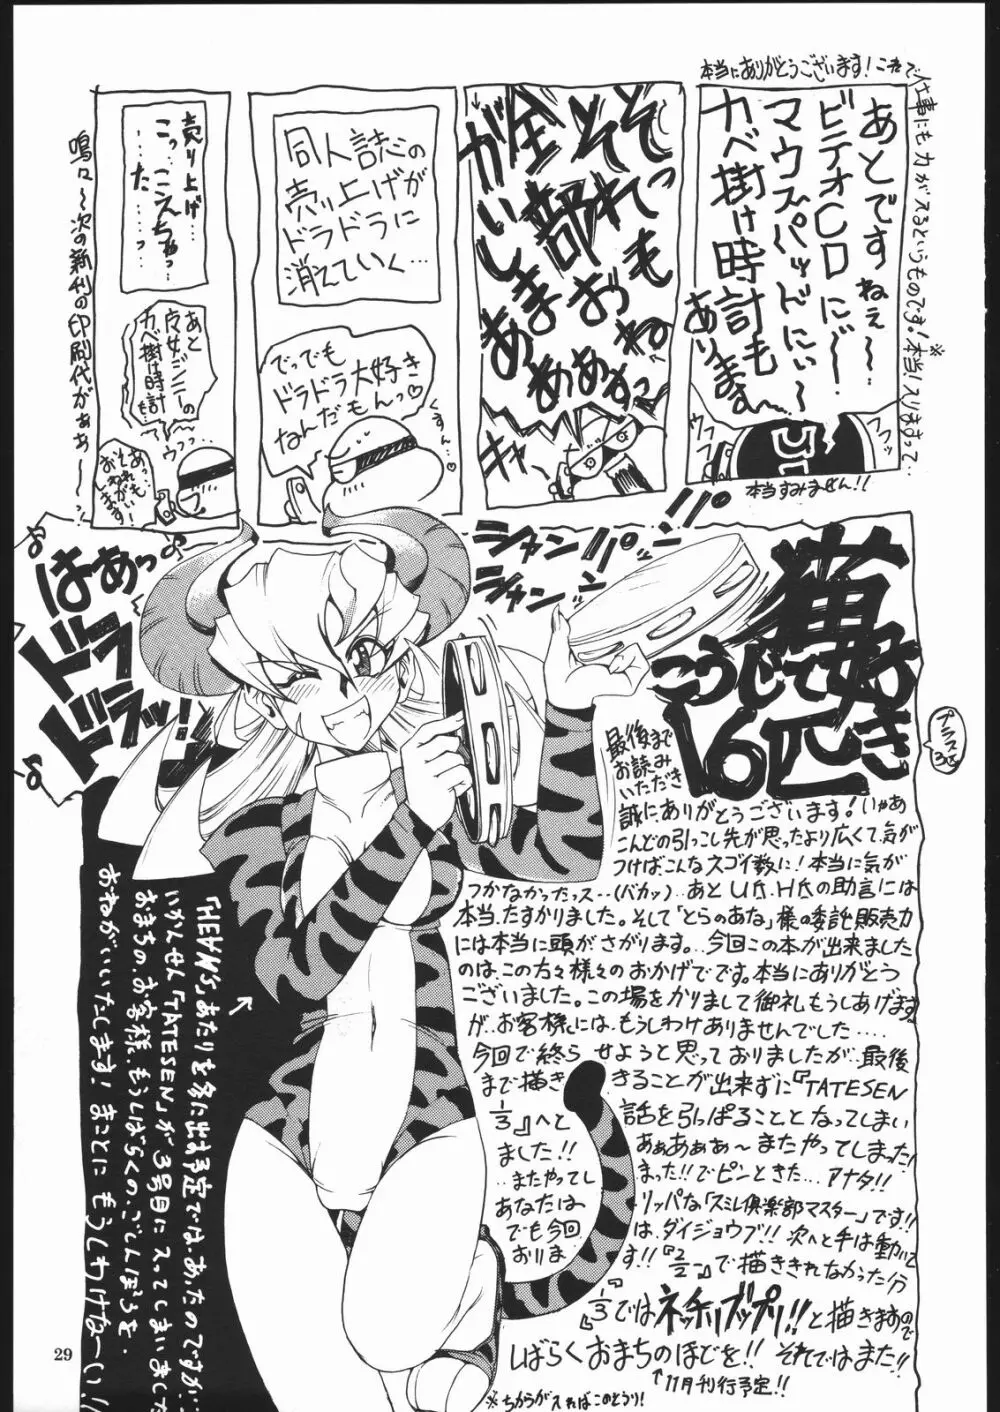 本当にありがとうございます!これで仕事にも力が入るというものです!※本当に入りますって…
あとですねぇ〜
ビデオCDにぃ〜
マウスパッドにぃ〜
カベ掛け時計も
あります
ウフフ
ウフフ
本当すみません!!
そそ
れっ
も
ね
全部
おああ
がいしまあぁっ
キャー
同人誌の
売り上げが
ドラドラに
消えていく…
でっでも
ドラドラ大好き
なんだもんっ♡
くすん…♡
売り上げ…
こっ…ここえちゃっ…
…た………っ
あと
皮女ジニーの
カベ掛け時計
も…
ウウッ…
あっ、それも
おねがい
します
鳴々〜次の新刊の印刷代がぁぁ〜っ!
はあっ
ドラ
ドラッ!!
シャンパン
シャンパン
猫好き
こうじて
16匹
プラス3匹
最後まで
お読み
いただき
誠にありがとうございます!いやぁ
こんどの引っこし先が思ったより広くて、気が
つけばこんなスゴイ数に!本当に気が
つかなかったっス…(バカッ)…あとU氏、H氏の助言には
本当、たすかりました。そして「とらのあな」様の委託販売力
には本当に頭がさがります。…今回この本が出来ました
のは、この方々様々のおかげでです。本当にありがとう
ございました。この場をかりまして御礼もうしあげます。
が…お客様には、もうしわけありませんでした……
今回で終らせようと思っておりましたが…最後
まで描ききることが出来ずに『TATESEN
1/3』へと話を引っぱることとなってしまい
ました!!ああぁあぁぁ〜またやってしまった!
…またやってしまった!!でピンときた…アナタ!!
あなたはリッパな「スミレ倶楽部マスター」です!!
でも今回は、ダイジョウブ!!次へと手は動いて
おります!!『2/2』で描ききれなかった分
『1/3』ではネッチリブップリ!!と描きますので
しばらくおまちのほどを!!それではまた!!
↑11月刊行予定!!
※ちからが入ればこのとうり!
『HEAWS』あたりを冬に出す予定では、あったのですが…
いかんせん『TATESEN』が3号目に入ってしまいました
おまちの、お客様、もうしばらくの、ごしんぼうを、
おねがいいたします!まことにもうしわけな〜い!!
29